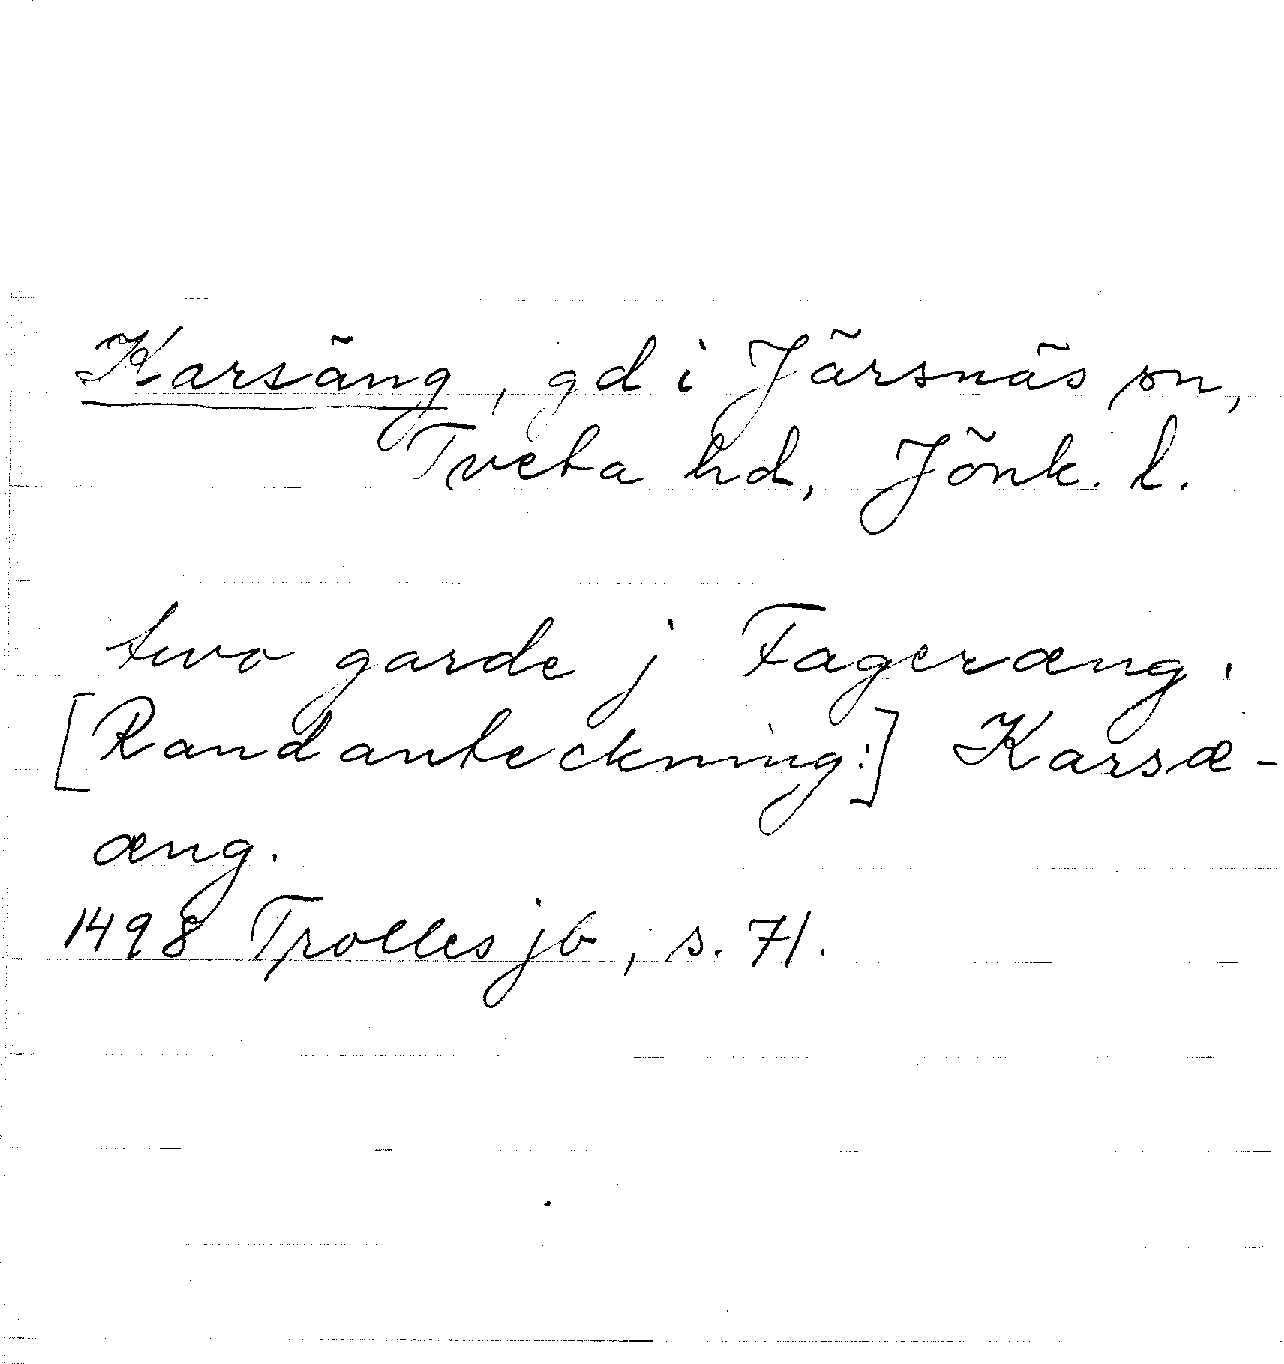 Karsäng, gd i Järsnäs sn,
Tveta hd, Jönk. l.
two garde j Fageræng.
[Randanteckning:] Karsæ-
æng.
1498 Trolles jb, s. 71.